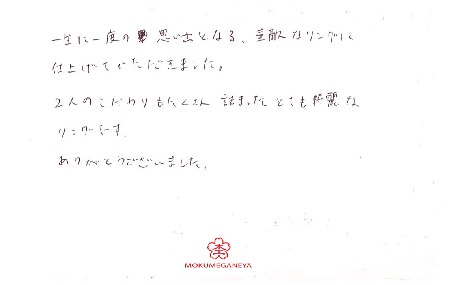 一生に一度の思い出となる、素敵なリングに
仕上げていただきました。
2人のこだわりもたくさん詰まったとても綺麗な
リングです。
ありがとうございました。
MOKUMEGANEYA